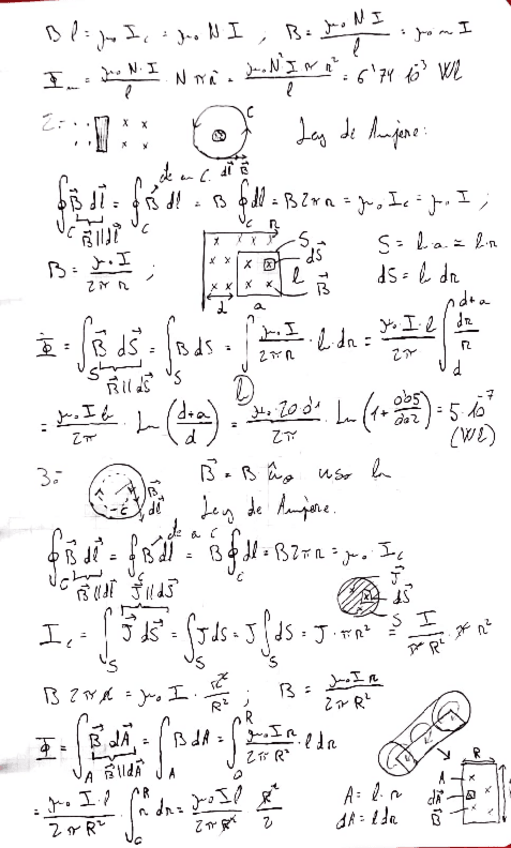 B l = μ₀ I_c = μ₀ N I ; B = μ₀ N I / l = μ₀ n I
Φ_m = μ₀ N·I / l · N π r² = μ₀ N² I π r² / l = 6'74 10⁻³ Wb
2.- Ley de Ampère:
C
dl⃗ B⃗
∮_C B⃗ dl⃗ = ∮_C B dl = B ∮_C dl = B 2π r = μ₀ I_c = μ₀ I ;
B⃗∥dl⃗
B = μ₀ I / 2π r ;
r S dS⃗ l B⃗ d a
S = l·a = l·r
dS = l dr
Φ = ∫_S B⃗ dS⃗ = ∫_S B dS = ∫ μ₀ I / 2π r · l dr = μ₀ I·l / 2π ∫_d^{d+a} dr / r
B⃗∥dS⃗
= μ₀ I l / 2π · Ln ( d+a / d ) = μ₀ 20 0'1 / 2π · Ln ( 1 + 0'05 / 0'02 ) = 5·10⁻⁷ (Wb)
3.- B⃗ = B û_φ uso la
Ley de Ampère.
B⃗ dl⃗ C
∮_C B⃗ dl⃗ = ∮_C B dl = B ∮_C dl = B 2π r = μ₀ · I_c
B⃗∥dl⃗ J⃗∥dS⃗
J⃗ dS⃗ S
I_c = ∫_S J⃗ dS⃗ = ∫_S J dS = J ∫_S dS = J · π r² = I / π R² · π r²
B 2π r = μ₀ I · r² / R² ; B = μ₀ I r / 2π R²
Φ = ∫_A B⃗ dA⃗ = ∫_A B dA = ∫_0^R μ₀ I r / 2π R² · l dr
B⃗∥dA⃗
R A dA⃗ B⃗
= μ₀ I·l / 2π R² · ∫_0^R r dr = μ₀ I l / 2π R² R² / 2
A = l·r
dA = l dr